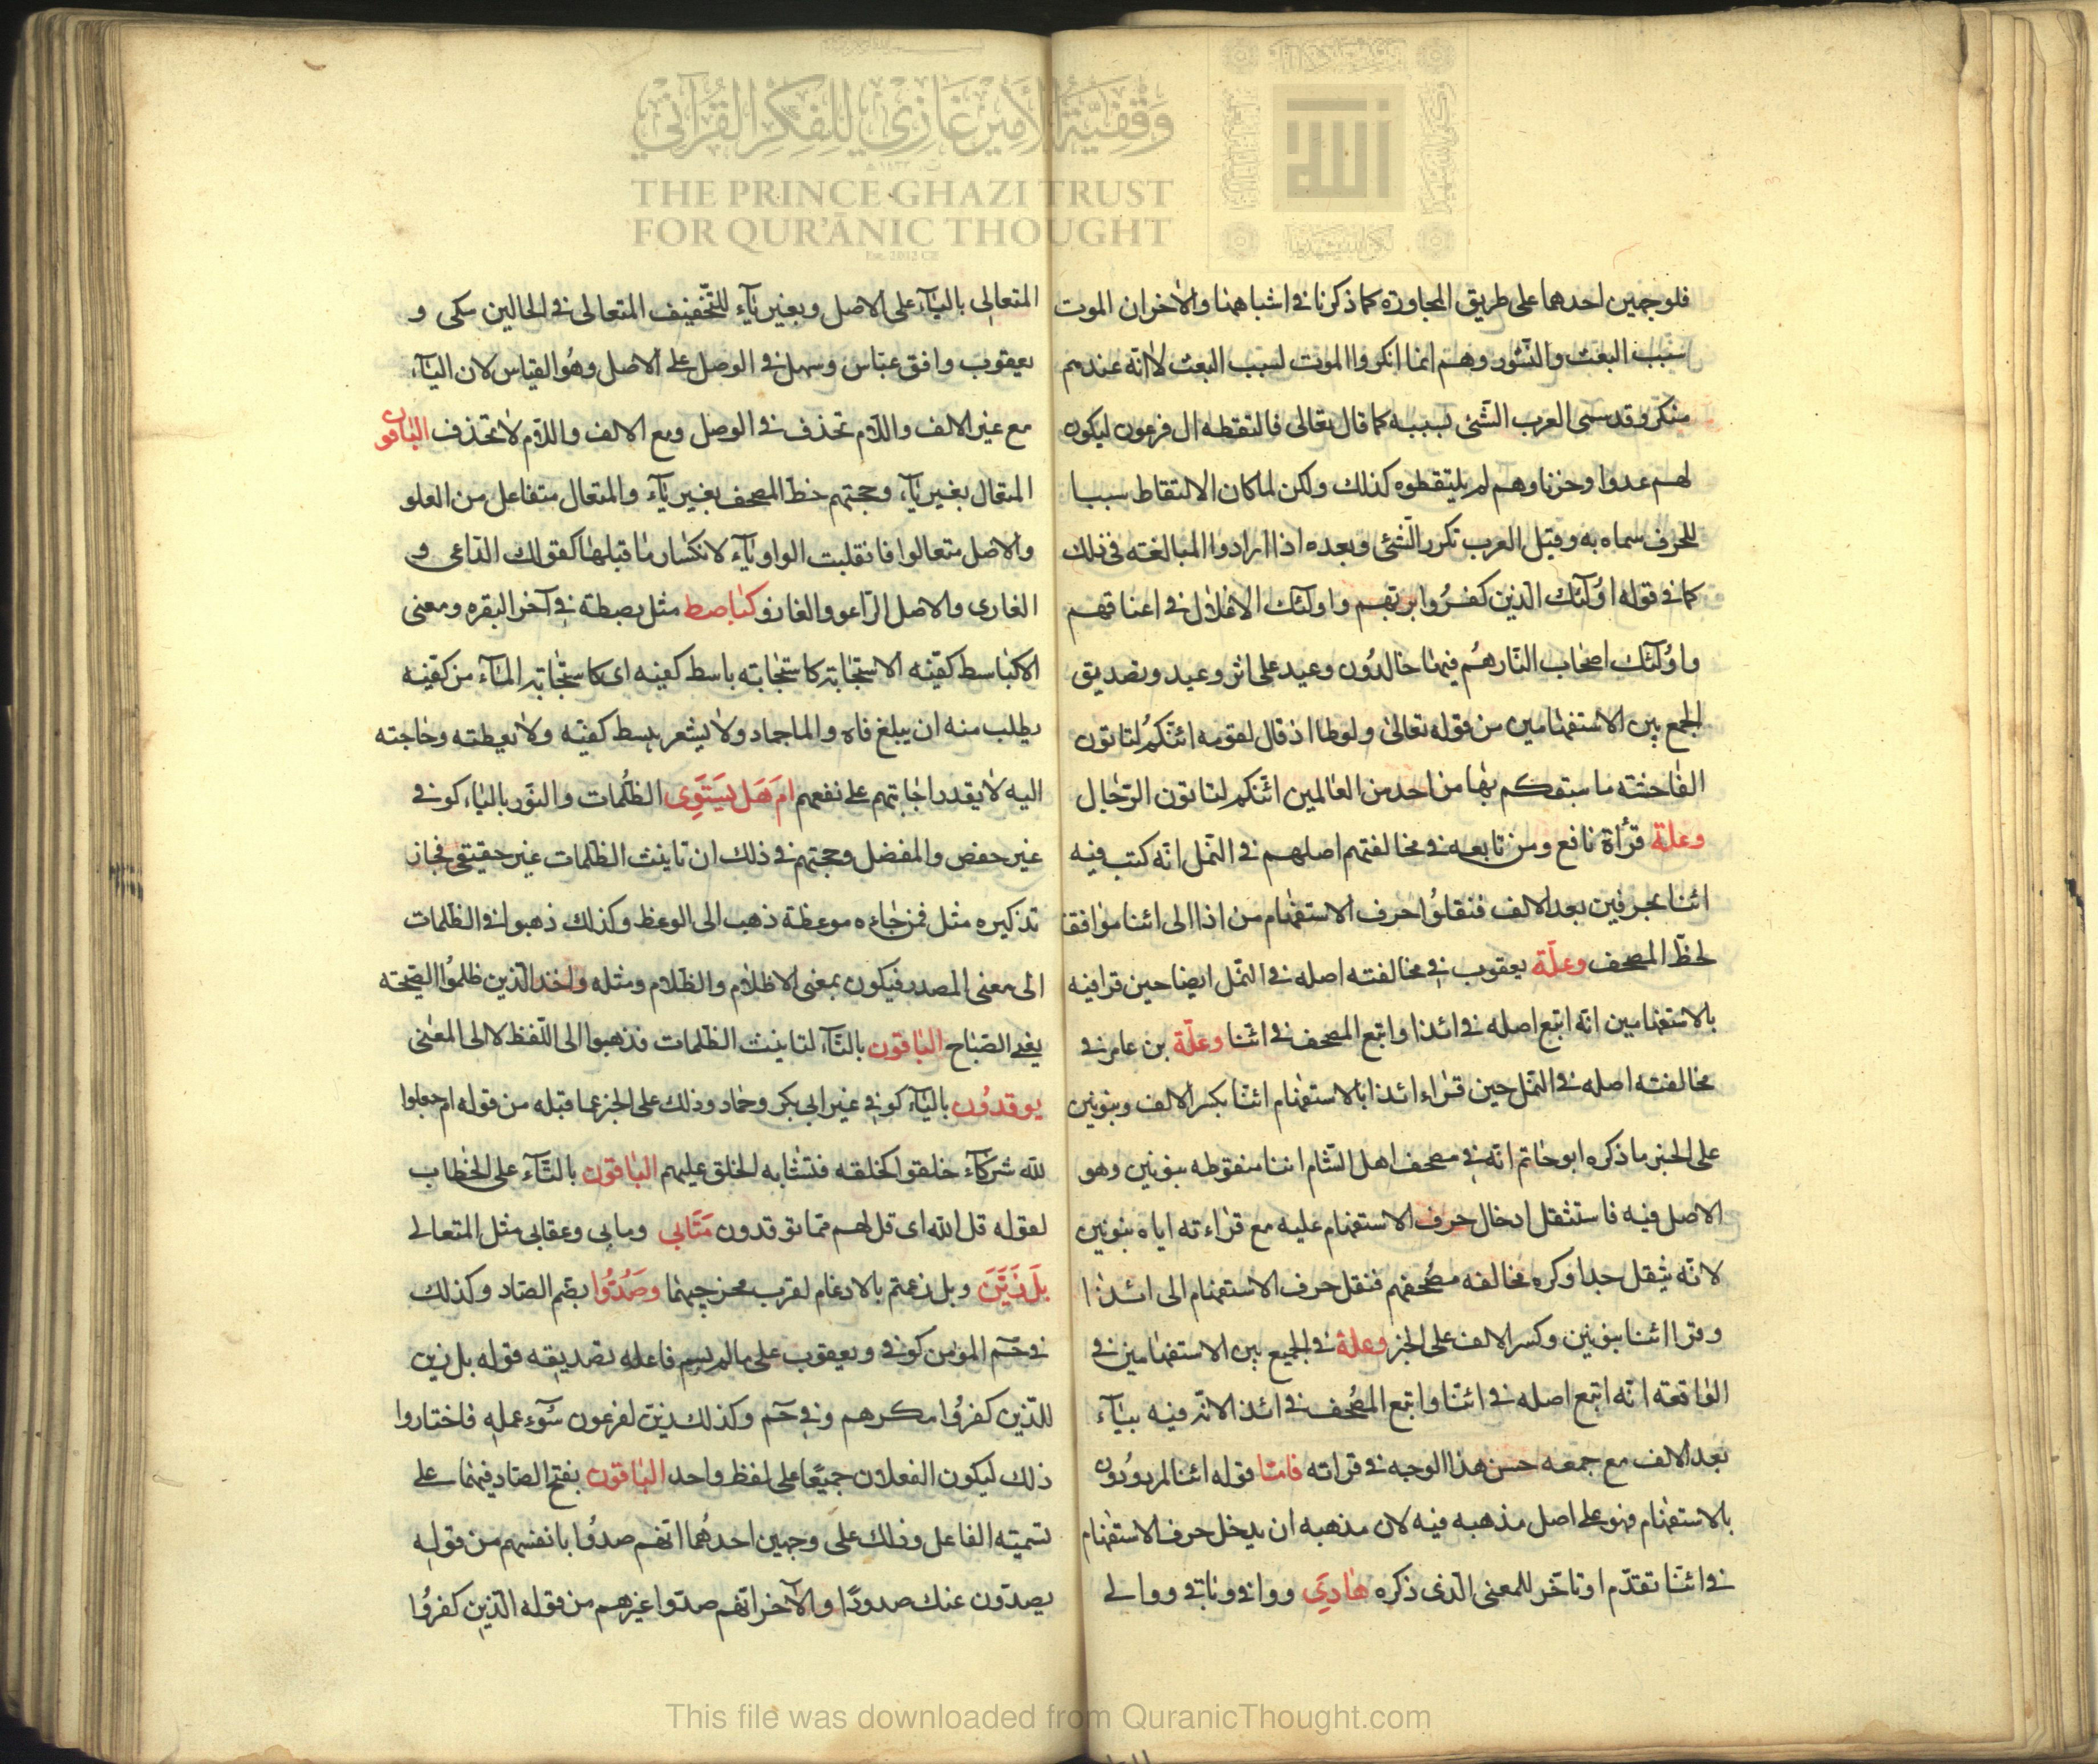 وقفية الأمير غازي للفكر القرآني
THE PRINCE GHAZI TRUST
FOR QUR'ĀNIC THOUGHT
Est. 2012 CE
فلوجهين احدهما على طريق المجاورة كما ذكرنا في اشباههنا والاخر ان الموت
سبب البعث والنشور وهم انما انكروا الموت لسبب البعث لانه عندهم
منكر وقد سمى العرب الشئ بسببه كما قال تعالى فالتقطه ال فرعون ليكون
لهم عدوا وحزنا وهم لم يلتقطوه كذلك ولكن لما كان الالتقاط سببا
للحزن سماه به وقيل العرب تكرر الشئ وبعده اذا ارادوا المبالغة في ذلك
كما في قوله اولٓئك الذين كفروا بربهم واولٓئك الاغلال في اعناقهم
واولٓئك اصحاب النار هم فيها خالدون وعيد على اثر وعيد وتصديق
الجمع بين الاستفهامين من قوله تعالى ولوطا اذ قال لقومه ائنكم لتاتون
الفاحشة ما سبقكم بها من احد من العالمين ائنكم لتاتون الرجال
وعلة قرأة نافع ومن تابعه في مخالفتهم اصلهم في النمل انه كتب فيه
ائنا بحرفين بعد الالف فنقلوا حرف الاستفهام من اذا الى ائنا موافقا
لخط المصحف وعلة يعقوب في مخالفته اصله في النمل ايضا حين قرا فيه
بالاستفهامين انه اتبع اصله في ائذا واتبع المصحف في ائنا وعلة بن عامر في
مخالفته اصله في النمل حين قراء ائذا بالاستفهام ائنا بكسر الالف وبنونين
على الخبر ما ذكره ابو حاتم انه في مصحف اهل الشام اننا منقوطه بنونين وهو
الاصل فيه فاستثقل ادخال حرف الاستفهام عليه مع قراءته اياه بنونين
لانه يثقل جدا وكره مخالفه مصحفهم فنقل حرف الاستفهام الى ائذا
وقرا اننا بنونين وكسر الالف على الخبر وعلة في الجمع بين الاستفهامين في
الواقعة انه اتبع اصله في ائنا واتبع المصحف في ائذا لانه فيه بيآء
بعد الالف مع جمعه حسن هذا الوجه في قراته فامّا قوله ائنا لمردودون
بالاستفهام فهو على اصل مذهبه فيه لان مذهبه ان يدخل حرف الاستفهام
في ائنا تقدّم او تاخّر للمعنى الذى ذكره هادي وواقي وباقي ووالي
المتعالى باليآء على الاصل وبغير يآء للتخفيف المتعالى في الحالين مكى و
يعقوب وافق عباس وسهل في الوصل على الاصل وهو القياس لان اليآء
مع غير الالف واللام تحذف في الوصل ومع الالف واللام لا تحذف الباقون
المتعال بغير يآء وحجتهم خط المصحف بغير يآء والمتعال متفاعل من العلو
والاصل متعالوا فانقلبت الواو يآء لانكسار ما قبلها كقولك الداعى و
الغازى والاصل الداعو والغازو كباصط مثل بصطة في آخر البقره ومعنى
الا كباسط كفيه الا ستجابة كاستجابة باسط كفيه اى كاستجابة المآء من كفيه
يطلب منه ان يبلغ فاه والما جماد ولا يشعر ببسط كفيه ولا بعطشه وحاجته
اليه لا يقدر اجابتهم على نفعهم ام هل يستوى الظلمات والنور بالياء كوفي
غير حفص والمفضل وحجتهم في ذلك ان تانيث الظلمات غير حقيقي فجاز
تذكيره مثل فمن جاءه موعظة ذهب الى الوعظ وكذلك ذهبوا في الظلمات
الى معنى المصدر فيكون بمعنى الاظلام والظلام ومثله واخذ الذين ظلموا الصيحة
يعنى الصياح الباقون بالتآء لتانيث الظلمات فذهبوا الى اللفظ لا الى المعنى
يوقدون باليآء كوفي غير ابي بكر وحماد وذلك على الخبر عما قبله من قوله ام جعلوا
لله شركآء خلقوا كخلقه فتشابه الخلق عليهم الباقون بالتآء على الخطاب
لقوله قل الله اى قل لهم مما توقدون مَتَابي ومابى وعقابى مثل المتعالى
بل زَيَّنَ وبل زعمتم بالادغام لقرب مخرجيهما وصُدُّوا بضم الصاد وكذلك
في حٓم المؤمن كوفي ويعقوب على ما لم يسم فاعله تصديقه قوله بل زين
للذين كفروا مكرهم وفي حٓم وكذلك زين لفرعون سوٓء عمله فاختاروا
ذلك ليكون الفعلان جميعًا على لفظ واحد الباقون بفتح الصاد فيهما على
تسمية الفاعل وذلك على وجهين احدهما انهم صدوا بانفسهم من قوله
يصدون عنك صدودًا والآخر انهم صدوا غيرهم من قوله الذين كفروا
This file was downloaded from QuranicThought.com